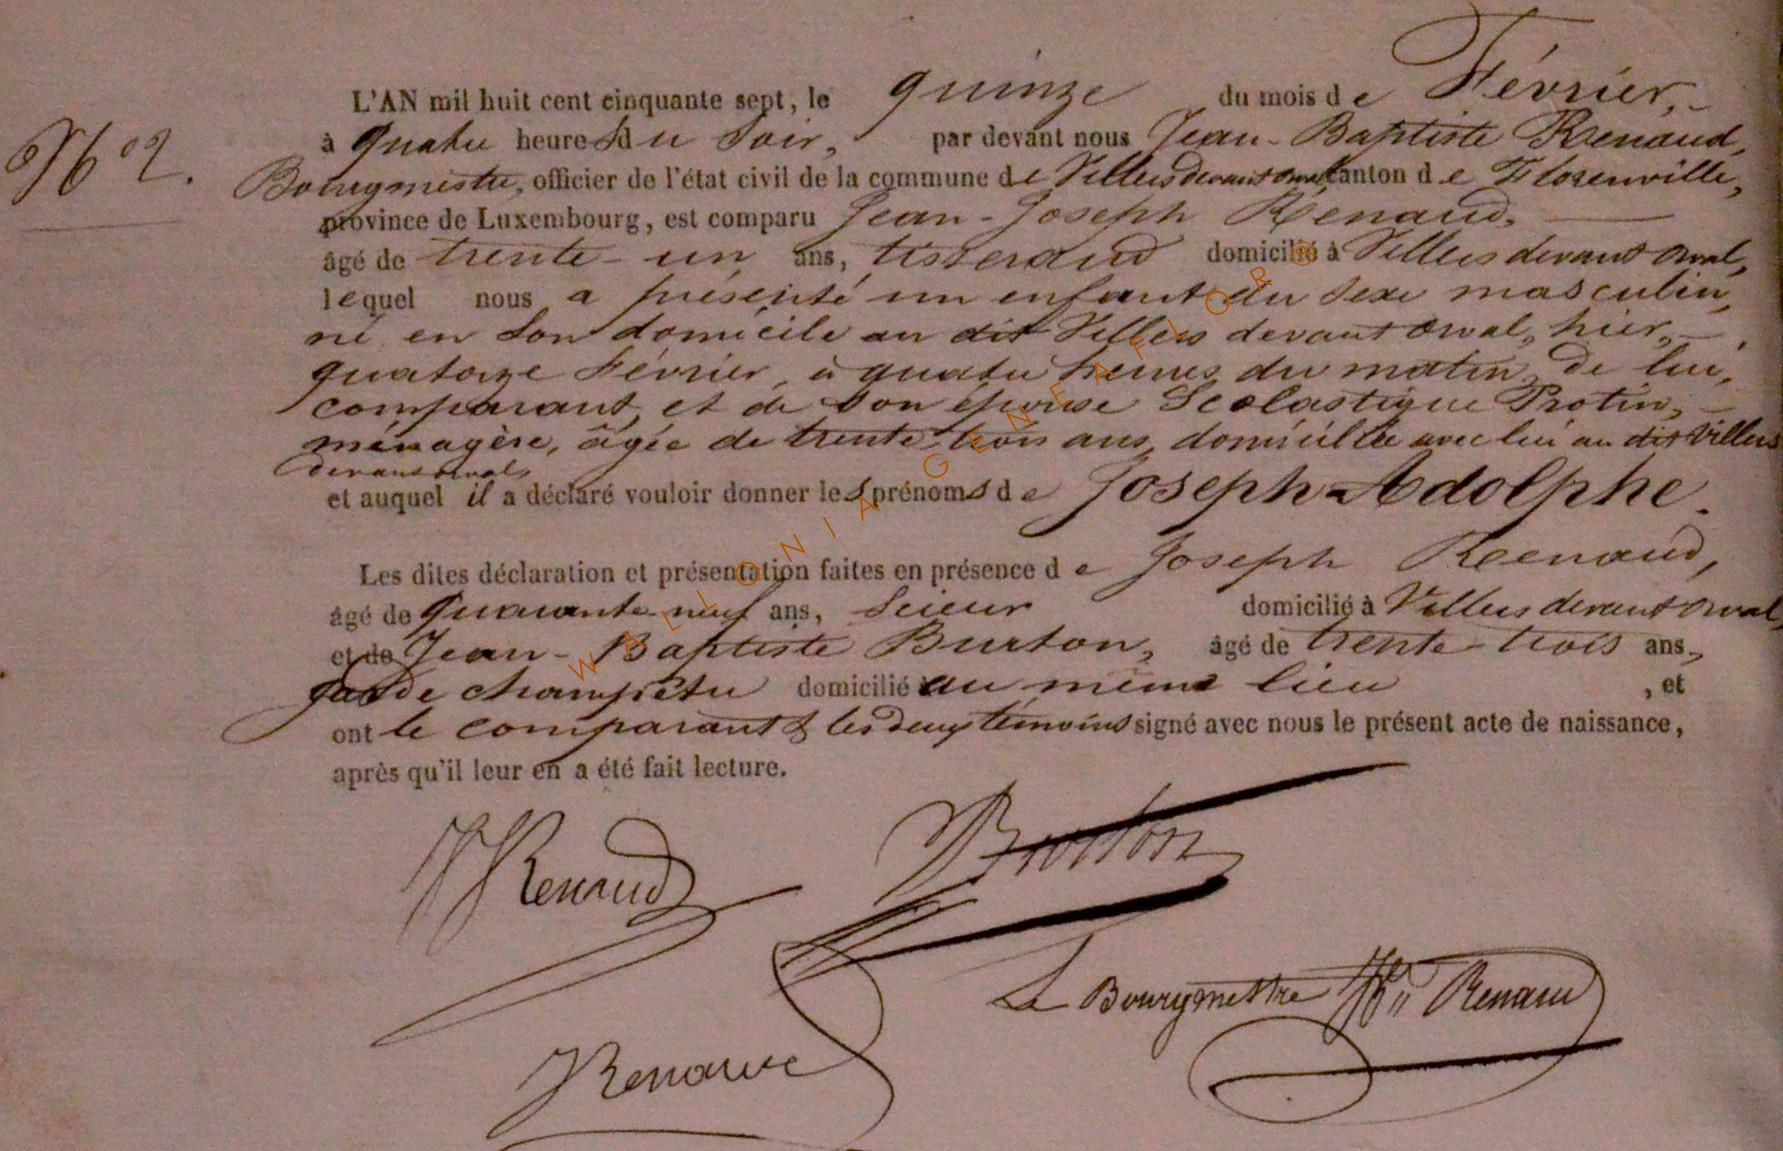 L'AN mil huit cent cinquante sept, le quinze du mois de Février,
N° 2.
à quatre heures du soir, par devant nous Jean-Baptiste Renaud,
Bourgmestre, officier de l'état civil de la commune de Villers devant orval canton de Florenville,
province de Luxembourg, est comparu Jean-Joseph Renaud,
âgé de trente-un ans, tisserand domicilié à Villers devant orval,
lequel nous a présenté un enfant du sexe masculin,
né en son domicile au dit Villers devant orval, hier,
quatorze Février, à quatre heures du matin, de lui,
comparant, et de son épouse Scolastique Protin,
ménagère, âgée de trente-trois ans, domiciliée avec lui au dit Villers
devant orval,
et auquel il a déclaré vouloir donner les prénoms de Joseph-Adolphe.
Les dites déclaration et présentation faites en présence de Joseph Renaud,
âgé de quarante-neuf ans, scieur domicilié à Villers devant orval,
et de Jean-Baptiste Burton, âgé de trente-trois ans,
garde champêtre domicilié au même lieu , et
ont le comparant & les deux témoins signé avec nous le présent acte de naissance,
après qu'il leur en a été fait lecture.
JJRenaud Burton
Le Bourgmestre Renaud
JRenaud
WALLONIA GENEAFLOR@